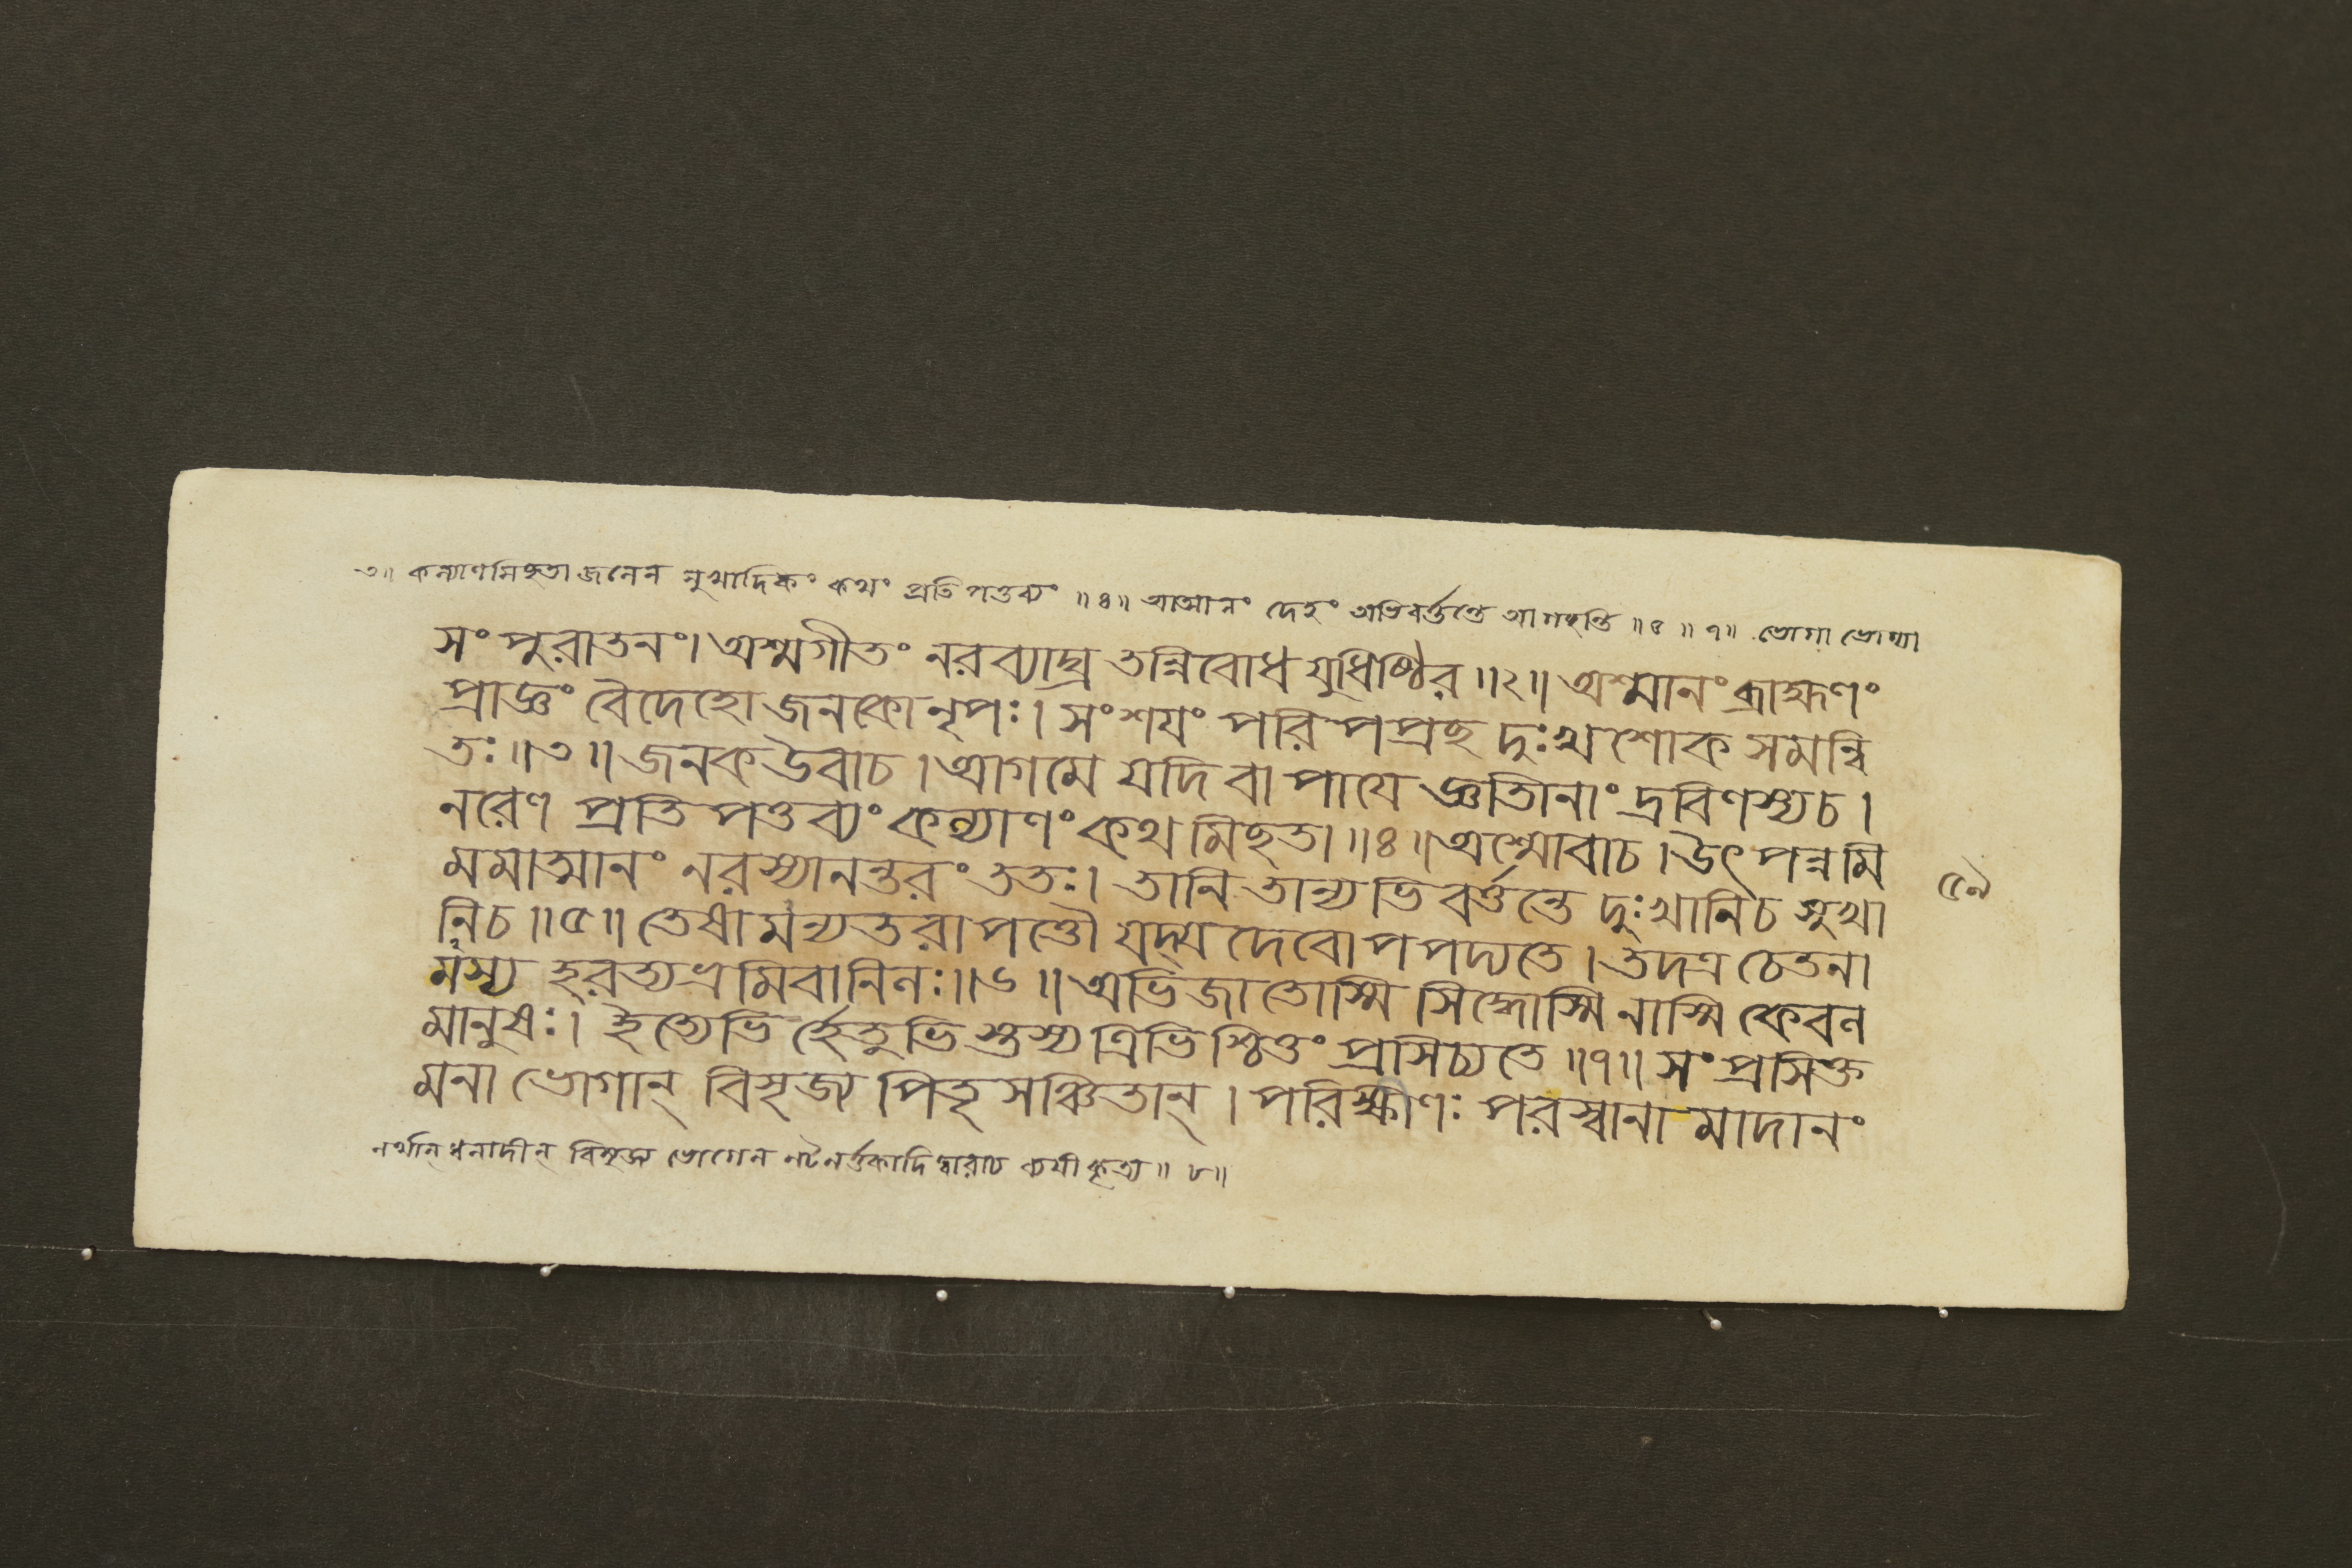 ৩॥ কল্যাণমিচ্ছতা জনেন সুখাদিকং কথং প্রতিপত্তব্যং ॥৪॥ আত্মানং দেহং অভিবর্ত্তন্তে আগচ্ছন্তি ॥৫॥৭॥ ভোগা ভোগ্যা
সং পুরাতনং। অশ্মগীতং নরব্যাঘ্র তন্নিবোধ যুধিষ্ঠির ॥২॥ অশ্মানং ব্রাহ্মণং
প্রাজ্ঞং বৈদেহো জনকো নৃপঃ। সংশয়ং পরিপপ্রচ্ছ দুঃখশোক সমন্বি
তঃ॥৩॥ জনক উবাচ। আগমে যদি বা পায়ে জ্ঞাতিনাং দ্রবিণস্যচ।
নরেণ প্রতিপত্তব্যং কল্যাণং কথমিচ্ছতা ॥৪॥ অশ্মোবাচ। উৎপন্নমি
মমাত্মানং নরস্যানন্তরং ততঃ। তানি তান্যভিবর্ত্তন্তে দুঃখানিচ সুখা
৫৯
নিচ ॥৫॥ তেষামন্যতরাপত্তৌ যদ্যদেবোপপদ্যতে। তদস্য চেতনা
মস্য হরত্যভ্রমিবানিলঃ॥৬॥ অভিজাতোস্মি সিদ্ধোস্মি নাস্মি কেবল
মানুষঃ। ইত্যেভির্হেতুভিস্তস্য ত্রিভিশ্চিত্তং প্রসিচ্যতে ॥৭॥ সংপ্রসিক্ত
মনা ভোগান্ বিসৃজ্য পিতৃসঞ্চিতান্। পরিক্ষীণঃ পরস্বানামাদানং
নর্থান্ ধনাদীন্ বিসৃজ্য ভোগেন নটনর্ত্তকাদিদ্বারাচ ব্যয়ীকৃত্য ॥৮॥